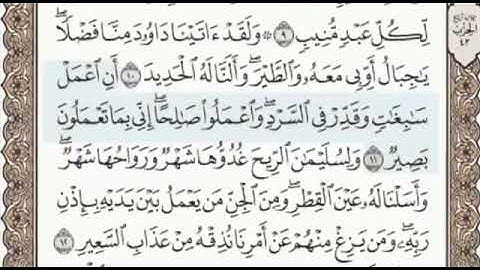 لِّكُلِّ عَبۡدٖ مُّنِيبٖ ٩ ۞ وَلَقَدۡ ءَاتَيۡنَا دَاوُۥدَ مِنَّا فَضۡلٗاۖ
يَٰجِبَالُ أَوِّبِي مَعَهُۥ وَٱلطَّيۡرَۖ وَأَلَنَّا لَهُ ٱلۡحَدِيدَ ١٠ أَنِ ٱعۡمَلۡ
سَٰبِغَٰتٖ وَقَدِّرۡ فِي ٱلسَّرۡدِۖ وَٱعۡمَلُواْ صَٰلِحًاۖ إِنِّي بِمَا تَعۡمَلُونَ
بَصِيرٞ ١١ وَلِسُلَيۡمَٰنَ ٱلرِّيحَ غُدُوُّهَا شَهۡرٞ وَرَوَاحُهَا شَهۡرٞۖ
وَأَسَلۡنَا لَهُۥ عَيۡنَ ٱلۡقِطۡرِۖ وَمِنَ ٱلۡجِنِّ مَن يَعۡمَلُ بَيۡنَ يَدَيۡهِ بِإِذۡنِ
رَبِّهِۦۖ وَمَن يَزِغۡ مِنۡهُمۡ عَنۡ أَمۡرِنَا نُذِقۡهُ مِنۡ عَذَابِ ٱلسَّعِيرِ ١٢
الحزب
٤٣